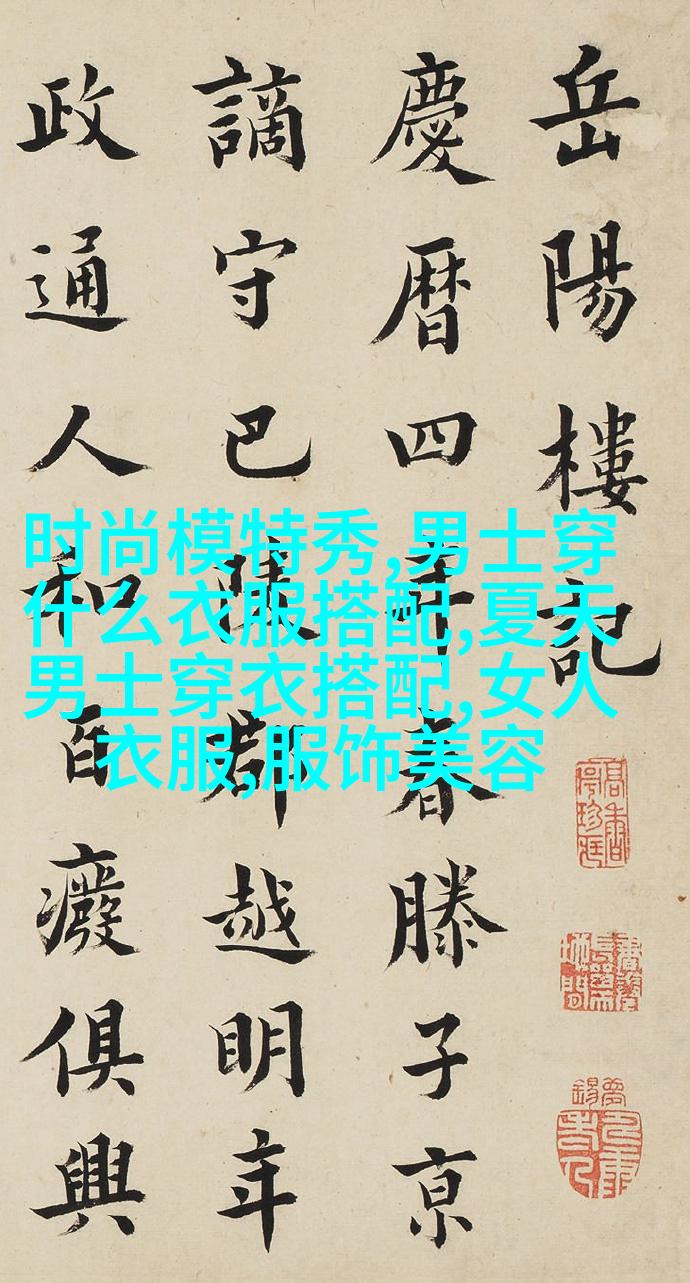 岳陽樓記
慶曆四年春滕子京
謫守巴陵郡越明年
政通人和百癈俱興
时尚模特秀,男士穿
什么衣服搭配,夏天
男士穿衣搭配,女人
衣服,服饰美容